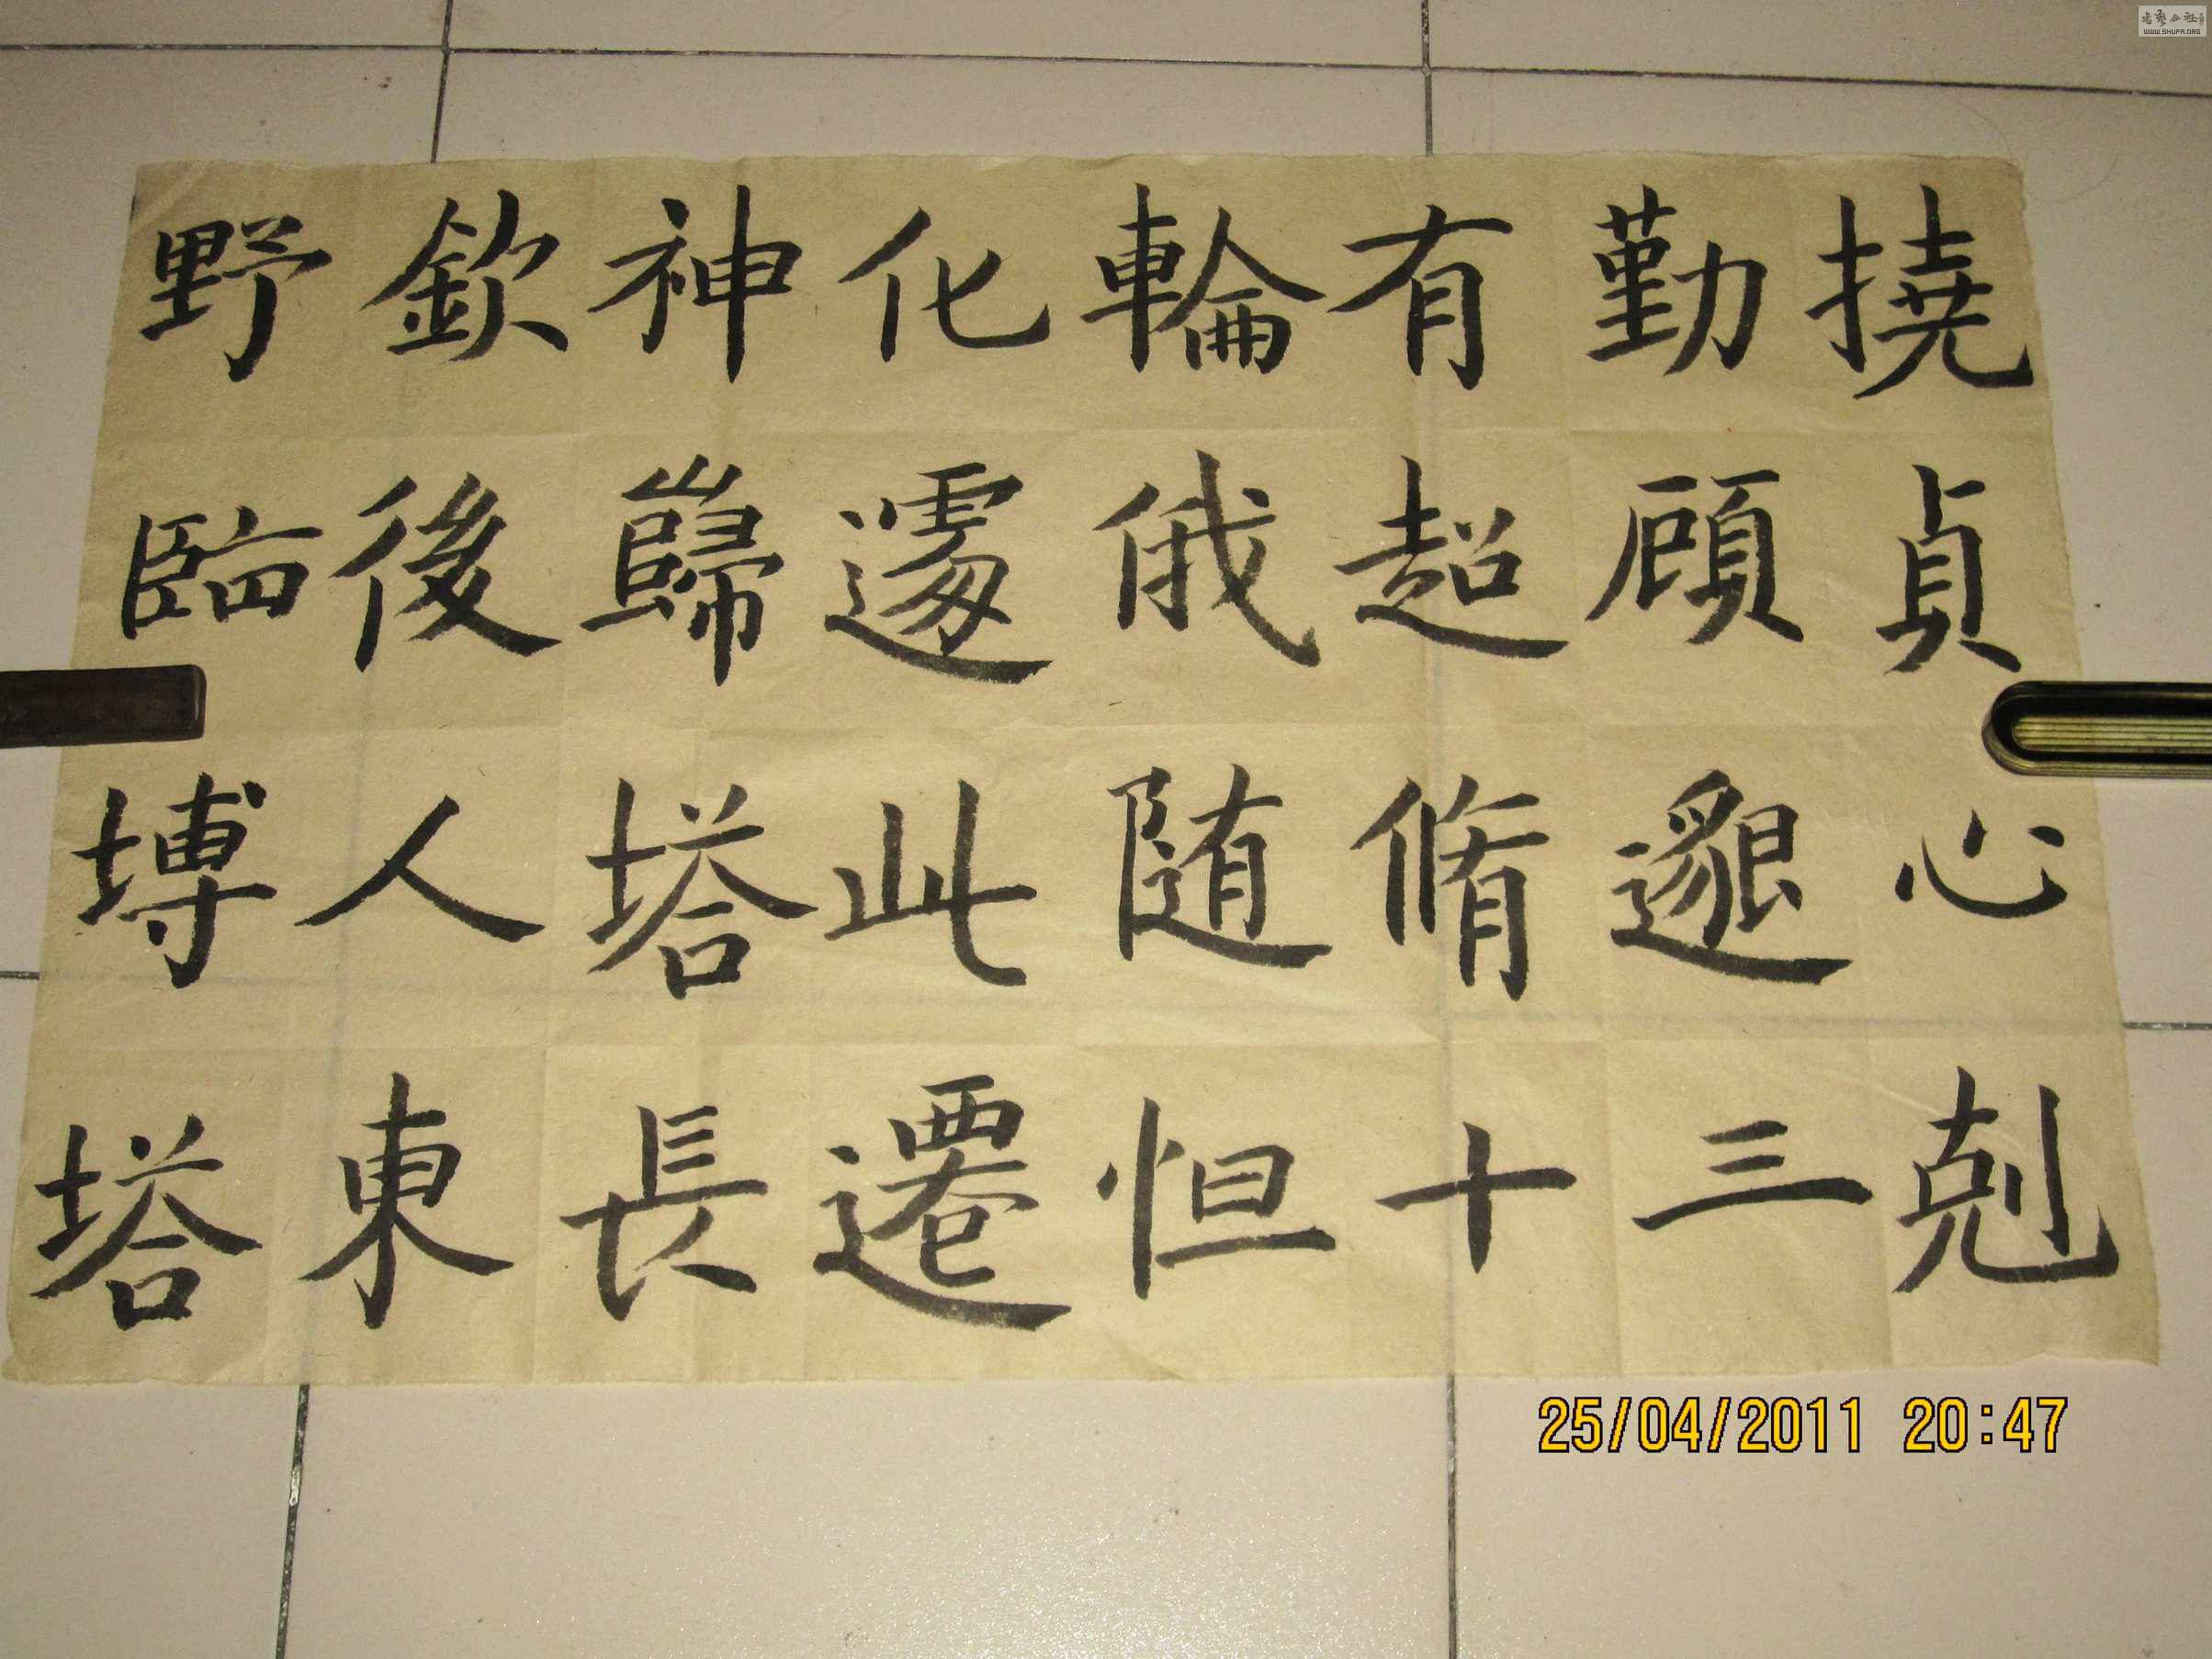 撓貞心剋
勤顧邈三
有超脩十
輪俄随恒
化遽此遷
神歸塔長
欽後人東
野臨塼塔
25/04/2011 20:47
WWW.SHUFA.ORG